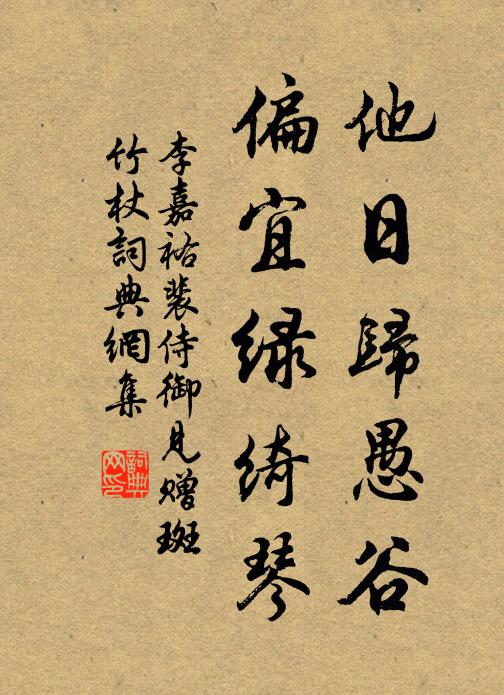 他日歸愚谷
偏宜綠綺琴
李嘉祐裴侍御見贈斑
竹杖詞典網集
詞典
网印